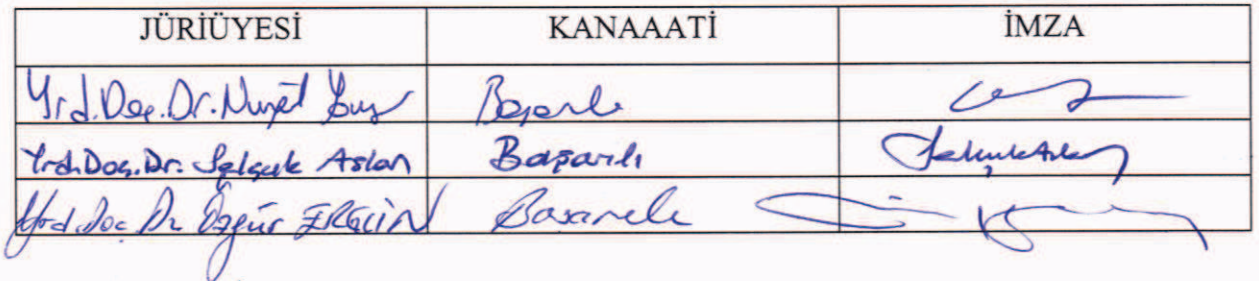 JÜRİÜYESİ KANAAATİ İMZA
Yrd.Doç.Dr. Başarılı
Yrd.Doç.Dr. Selçuk Aslan Başarılı Selçuk Aslan
Yrd.Doç.Dr. Özgür ERGÜN Başarılı